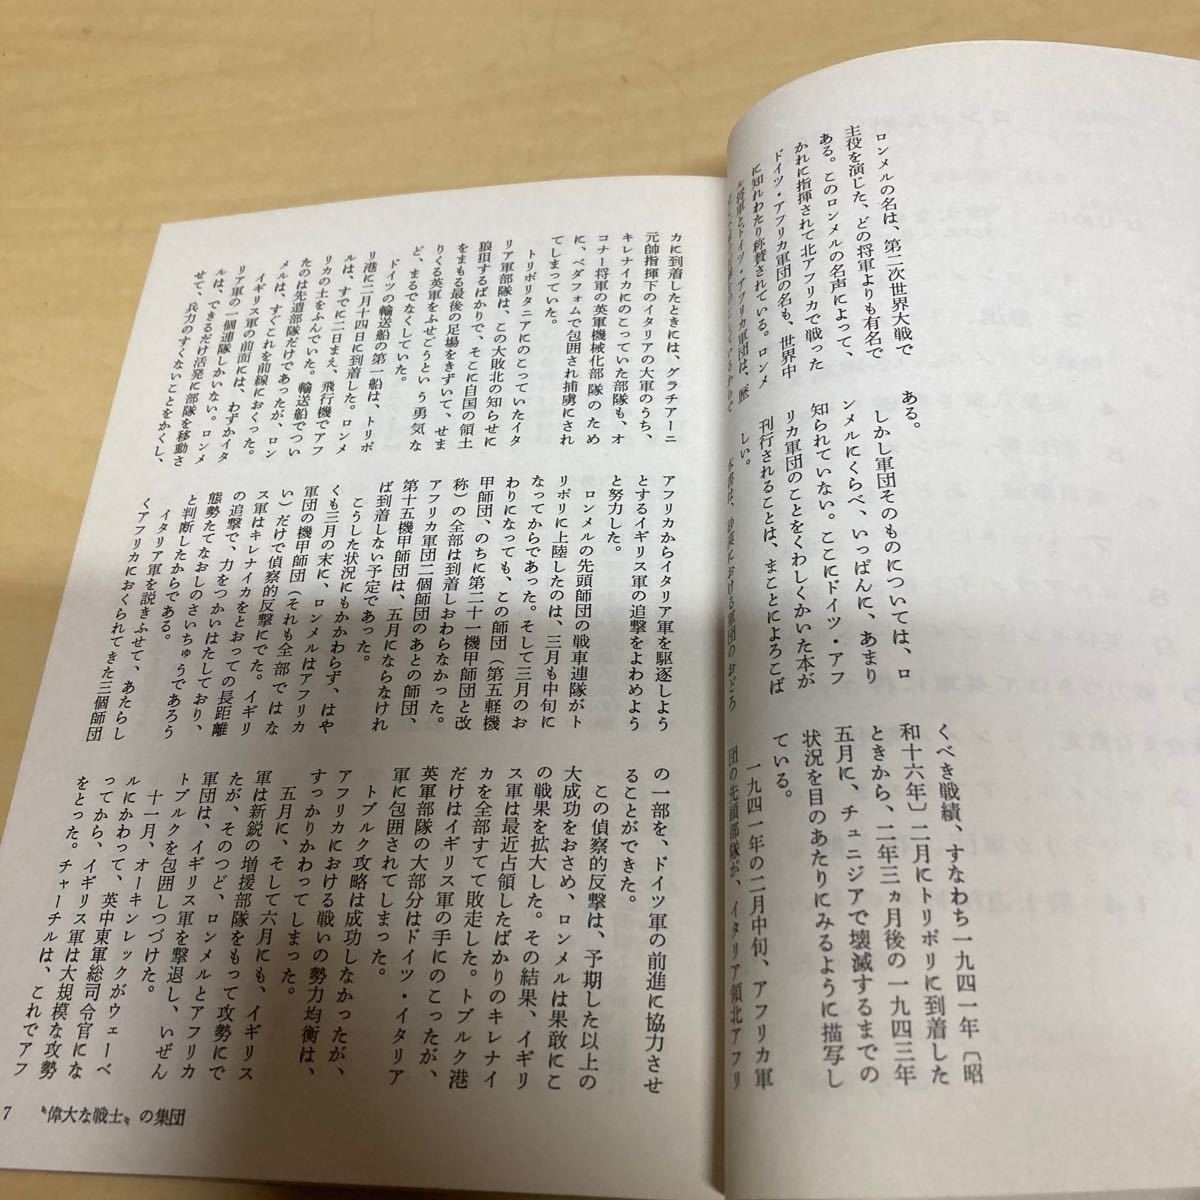 ロンメルの名は、第二次世界大戦で
主役を演じた、どの将軍よりも有名で
ある。このロンメルの名声によって、
かれに指揮されて北アフリカで戦った
ドイツ・アフリカ軍団の名も、世界中
に知れわたり称賛されている。ロンメ
ル将軍とドイツ・アフリカ軍団は、歴
ある。
しかし軍団そのものについては、ロ
ンメルにくらべ、いっぱんに、あまり
知られていない。ここにドイツ・アフ
リカ軍団のことをくわしくかいた本が
刊行されることは、まことによろこば
しい。
本書は、砂漠における軍団のおどろ
くべき戦績、すなわち一九四一年〔昭
和十六年〕二月にトリポリに到着した
ときから、二年三ヵ月後の一九四三年
五月に、チュニジアで壊滅するまでの
状況を目のあたりにみるように描写し
ている。
一九四一年の二月中旬、アフリカ軍
団の先頭部隊が、イタリア領北アフリ
カに到着したときには、グラチアーニ
元帥指揮下のイタリアの大軍のうち、
キレナイカにのこっていた部隊も、オ
コナー将軍の英軍機械化部隊のため
に、ベダフォムで包囲され捕虜にされ
てしまっていた。
トリポリタニアにのこっていたイタ
リア軍部隊は、この大敗北の知らせに
狼狽するばかりで、そこに自国の領土
をまもる最後の足場をきずいて、せま
りくる英軍をふせごうという勇気な
ど、まるでなくしていた。
ドイツの輸送船の第一船は、トリポ
リ港に二月十四日に到着した。ロンメ
ルは、すでに二日まえ、飛行機でアフ
リカの土をふんでいた。輸送船でつい
たのは先遣部隊だけであったが、ロン
メルは、すぐこれを前線におくった。
イギリス軍の前面には、わずかイタ
リア軍の一個連隊しかいない。ロンメ
ルは、できるだけ活発に部隊を移動さ
せて、兵力のすくないことをかくし、
アフリカからイタリア軍を駆逐しよう
とするイギリス軍の追撃をよわめよう
と努力した。
ロンメルの先頭師団の戦車連隊がト
リポリに上陸したのは、三月も中旬に
なってからであった。そして三月のお
わりになっても、この師団（第五軽機
甲師団、のちに第二十一機甲師団と改
称）の全部は到着しおわらなかった。
アフリカ軍団二個師団のあとの師団、
第十五機甲師団は、五月にならなけれ
ば到着しない予定であった。
こうした状況にもかかわらず、はや
くも三月の末に、ロンメルはアフリカ
軍団の機甲師団（それも全部ではな
い）だけで偵察的反撃にでた。イギリ
ス軍はキレナイカをとおっての長距離
の追撃で、力をつかいはたしており、
態勢たてなおしのさいちゅうであろう
と判断したからである。
イタリア軍を説きふせて、あたらし
くアフリカにおくられてきた三個師団
の一部を、ドイツ軍の前進に協力させ
ることができた。
この偵察的反撃は、予期した以上の
大成功をおさめ、ロンメルは果敢にこ
の戦果を拡大した。その結果、イギリ
ス軍は最近占領したばかりのキレナイ
カを全部すてて敗走した。トブルク港
だけはイギリス軍の手にのこったが、
英軍部隊の大部分はドイツ・イタリア
軍に包囲されてしまった。
トブルク攻略は成功しなかったが、
アフリカにおける戦いの勢力均衡は、
すっかりかわってしまった。
五月に、そして六月にも、イギリス
軍は新鋭の増援部隊をもって攻勢にで
たが、そのつど、ロンメルとアフリカ
軍団は、イギリス軍を撃退し、いぜん
トブルクを包囲しつづけた。
十一月、オーキンレックがウェーベ
ルにかわって、英中東軍総司令官にな
ってから、イギリス軍は大規模な攻勢
をとった。チャーチルは、これでアフ
7 〝偉大な戦士〟の集団